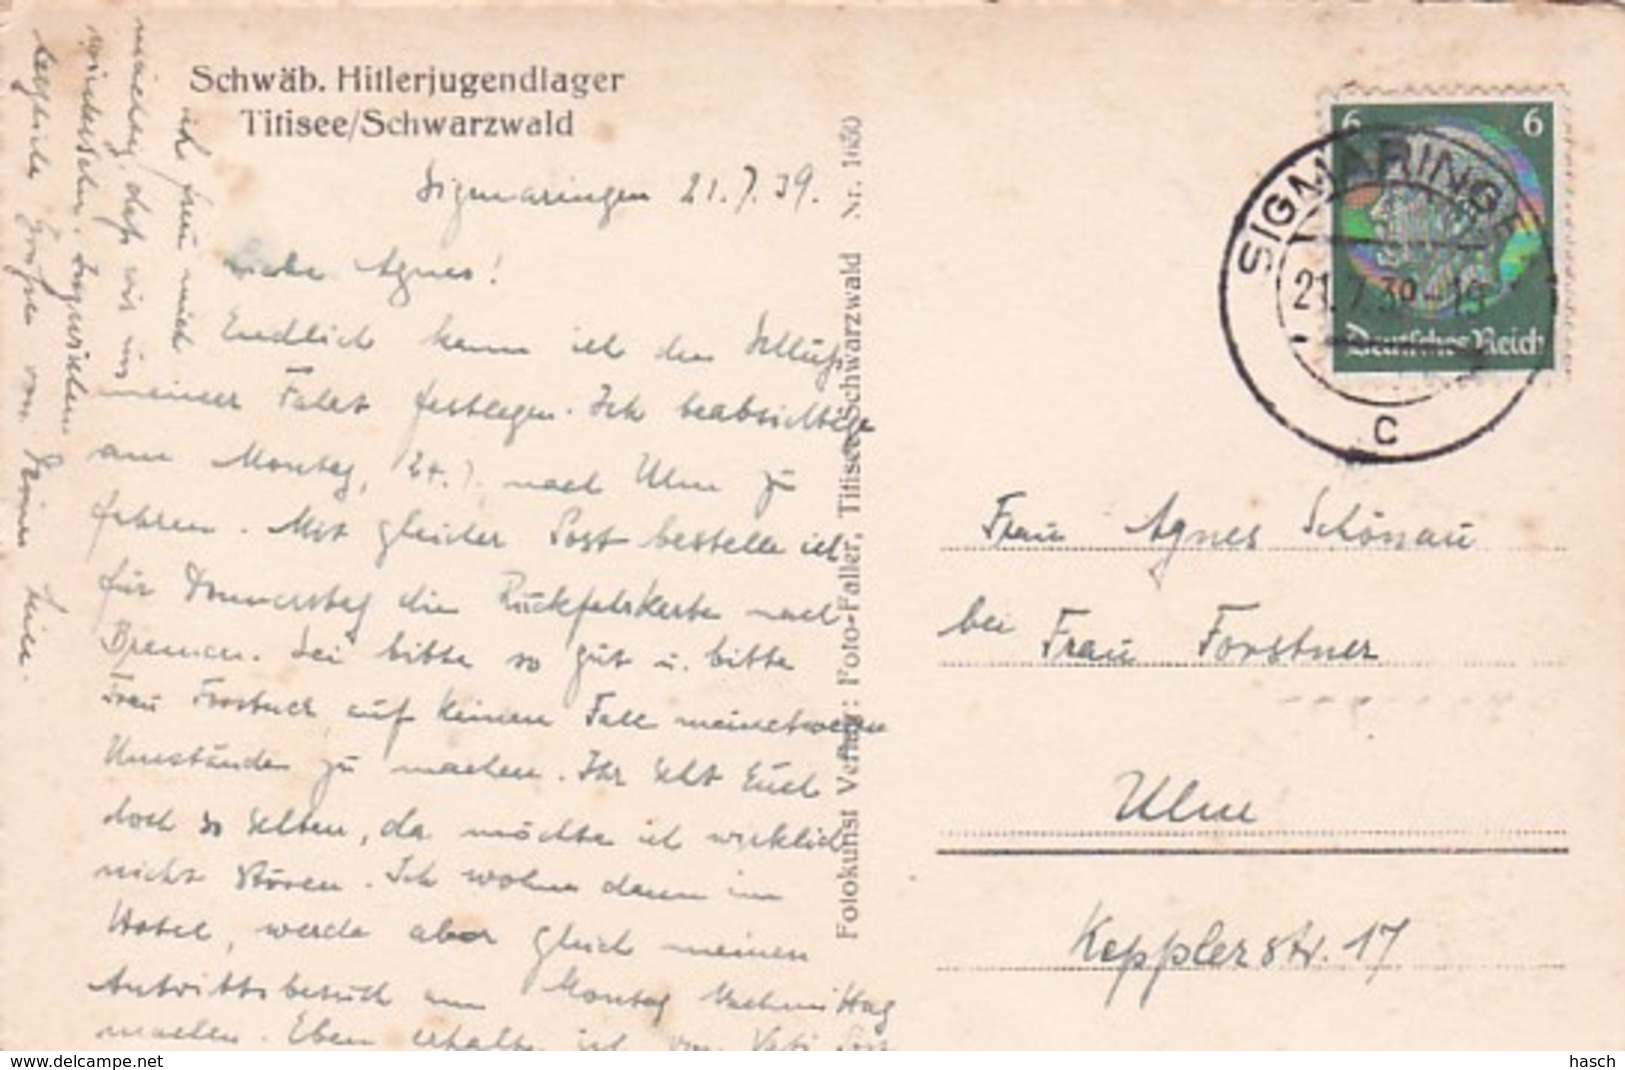 Schwäb. Hitlerjugendlager
Titisee/Schwarzwald
Sigmaringen 21.7.39.
Liebe Agnes!
Endlich kann ich den Schluß
meiner Fahrt festlegen. Ich beabsichtige
am Montag, 24.7. nach Ulm zu
fahren. Mit gleicher Post bestelle ich
für Donnerstag die Rückfahrkarte nach
Bremen. Sei bitte so gut u. bitte
Frau Forstner auf keinen Fall meinetwegen
Umstände zu machen. Ihr seht Euch
doch so selten, da möchte ich wirklich
nicht stören. Ich wohne dann im
Hotel, werde aber gleich meinen
Antrittsbesuch am Montag Nachmittag
machen. Eben erhalte ich von
ich freu mich
mächtig, daß wir uns
wiedersehn. Inzwischen
herzliche Grüße von Deiner
Fotokunst Verlag: Foto-Faller, Titisee/Schwarzwald Nr. 1630
6 6
Deutsches Reich
SIGMARINGEN
21.7.39-19
c
Frau Agnes Schönau
bei Frau Forstner
Ulm
Kepplerstr. 17
www.delcampe.net
hasch